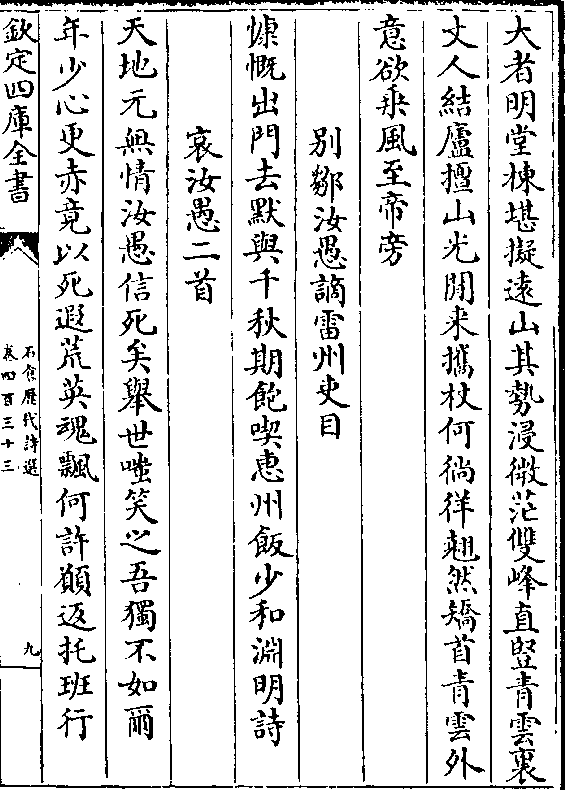 大者明堂棟堪擬遠山其勢浸微茫雙峰直豎青雲裏
丈人結廬擅山光閒来攜杖何徜徉翹然矯首青雲外
意欲乗風至帝旁
别鄒汝愚謫雷州吏目
慷慨出門去默與千秋期飽喫惠州飯少和淵明詩
哀汝愚二首
天地元無情汝愚信死矣舉世嗤笑之吾獨不如爾
年少心更赤竟以死遐荒英魂飄何許願返托班行
欽定四庫全書
石倉歷代詩選
卷四百三十三
九